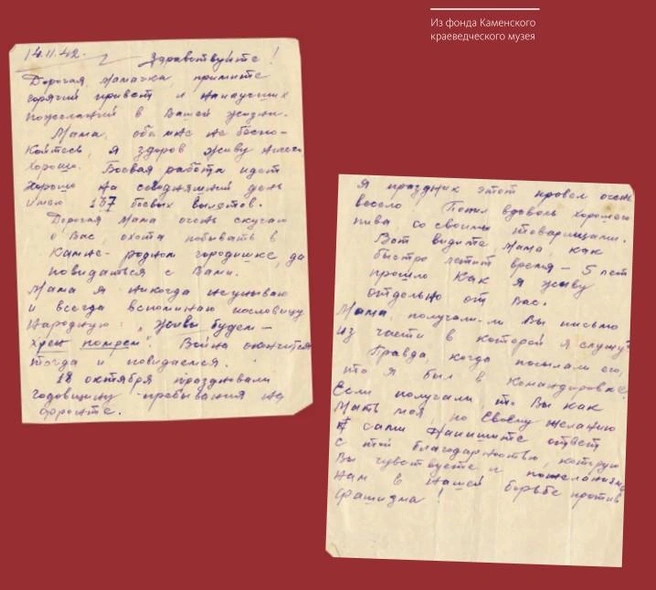 Из фонда Каменского
краеведческого музея
14.11.42.
Здравствуйте!
Дорогая Мамачка, примите
горячий привет и наилучших
пожеланий в Вашей жизни.
Мама, обо мне не беспо-
койтесь, я здоров живу
хорошо. Боевая работа идет
хорошо на сегодняшний день
имею 137 боевых вылетов.
Дорогая Мама очень скучаю
о Вас, охота побывать в
Камне - родном городишке, да
повидаться с Вами.
Мама я никогда не унываю
и всегда вспоминаю пословицу
народную: "Живы будем -
хрен помрем". Война окончится
тогда и повидаемся.
18 октября праздновали
годовщину пребывания на
фронте.
Я праздник этот провел очень
весело. Попил вдоволь хорошего
пива со своими товарищами.
Вот видите Мама, как
быстро летит время - 5 лет
прошло как я живу
отдельно от Вас.
Мама получали-ли Вы письмо
из части в которой я служу?
Правда, когда посылали его,
то я был в командировке.
Если получали то Вы как
Мать моя, по своему желанию
и сами напишите ответ
с той благодарностью, которую
Вы чувствуете и пожеланиями
нам в нашей борьбе против
фашизма!